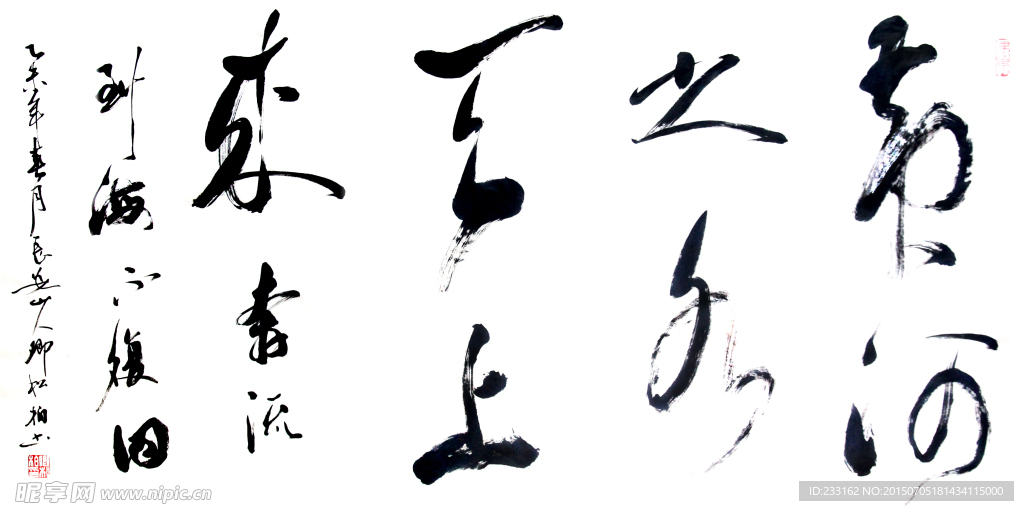 黄河
之水
天上
来奔流
到海不復回
乙未年春月長岳山人卿松柏书
昵享网 www.nipic.cn
ID:233162 NO:20150705181434115000